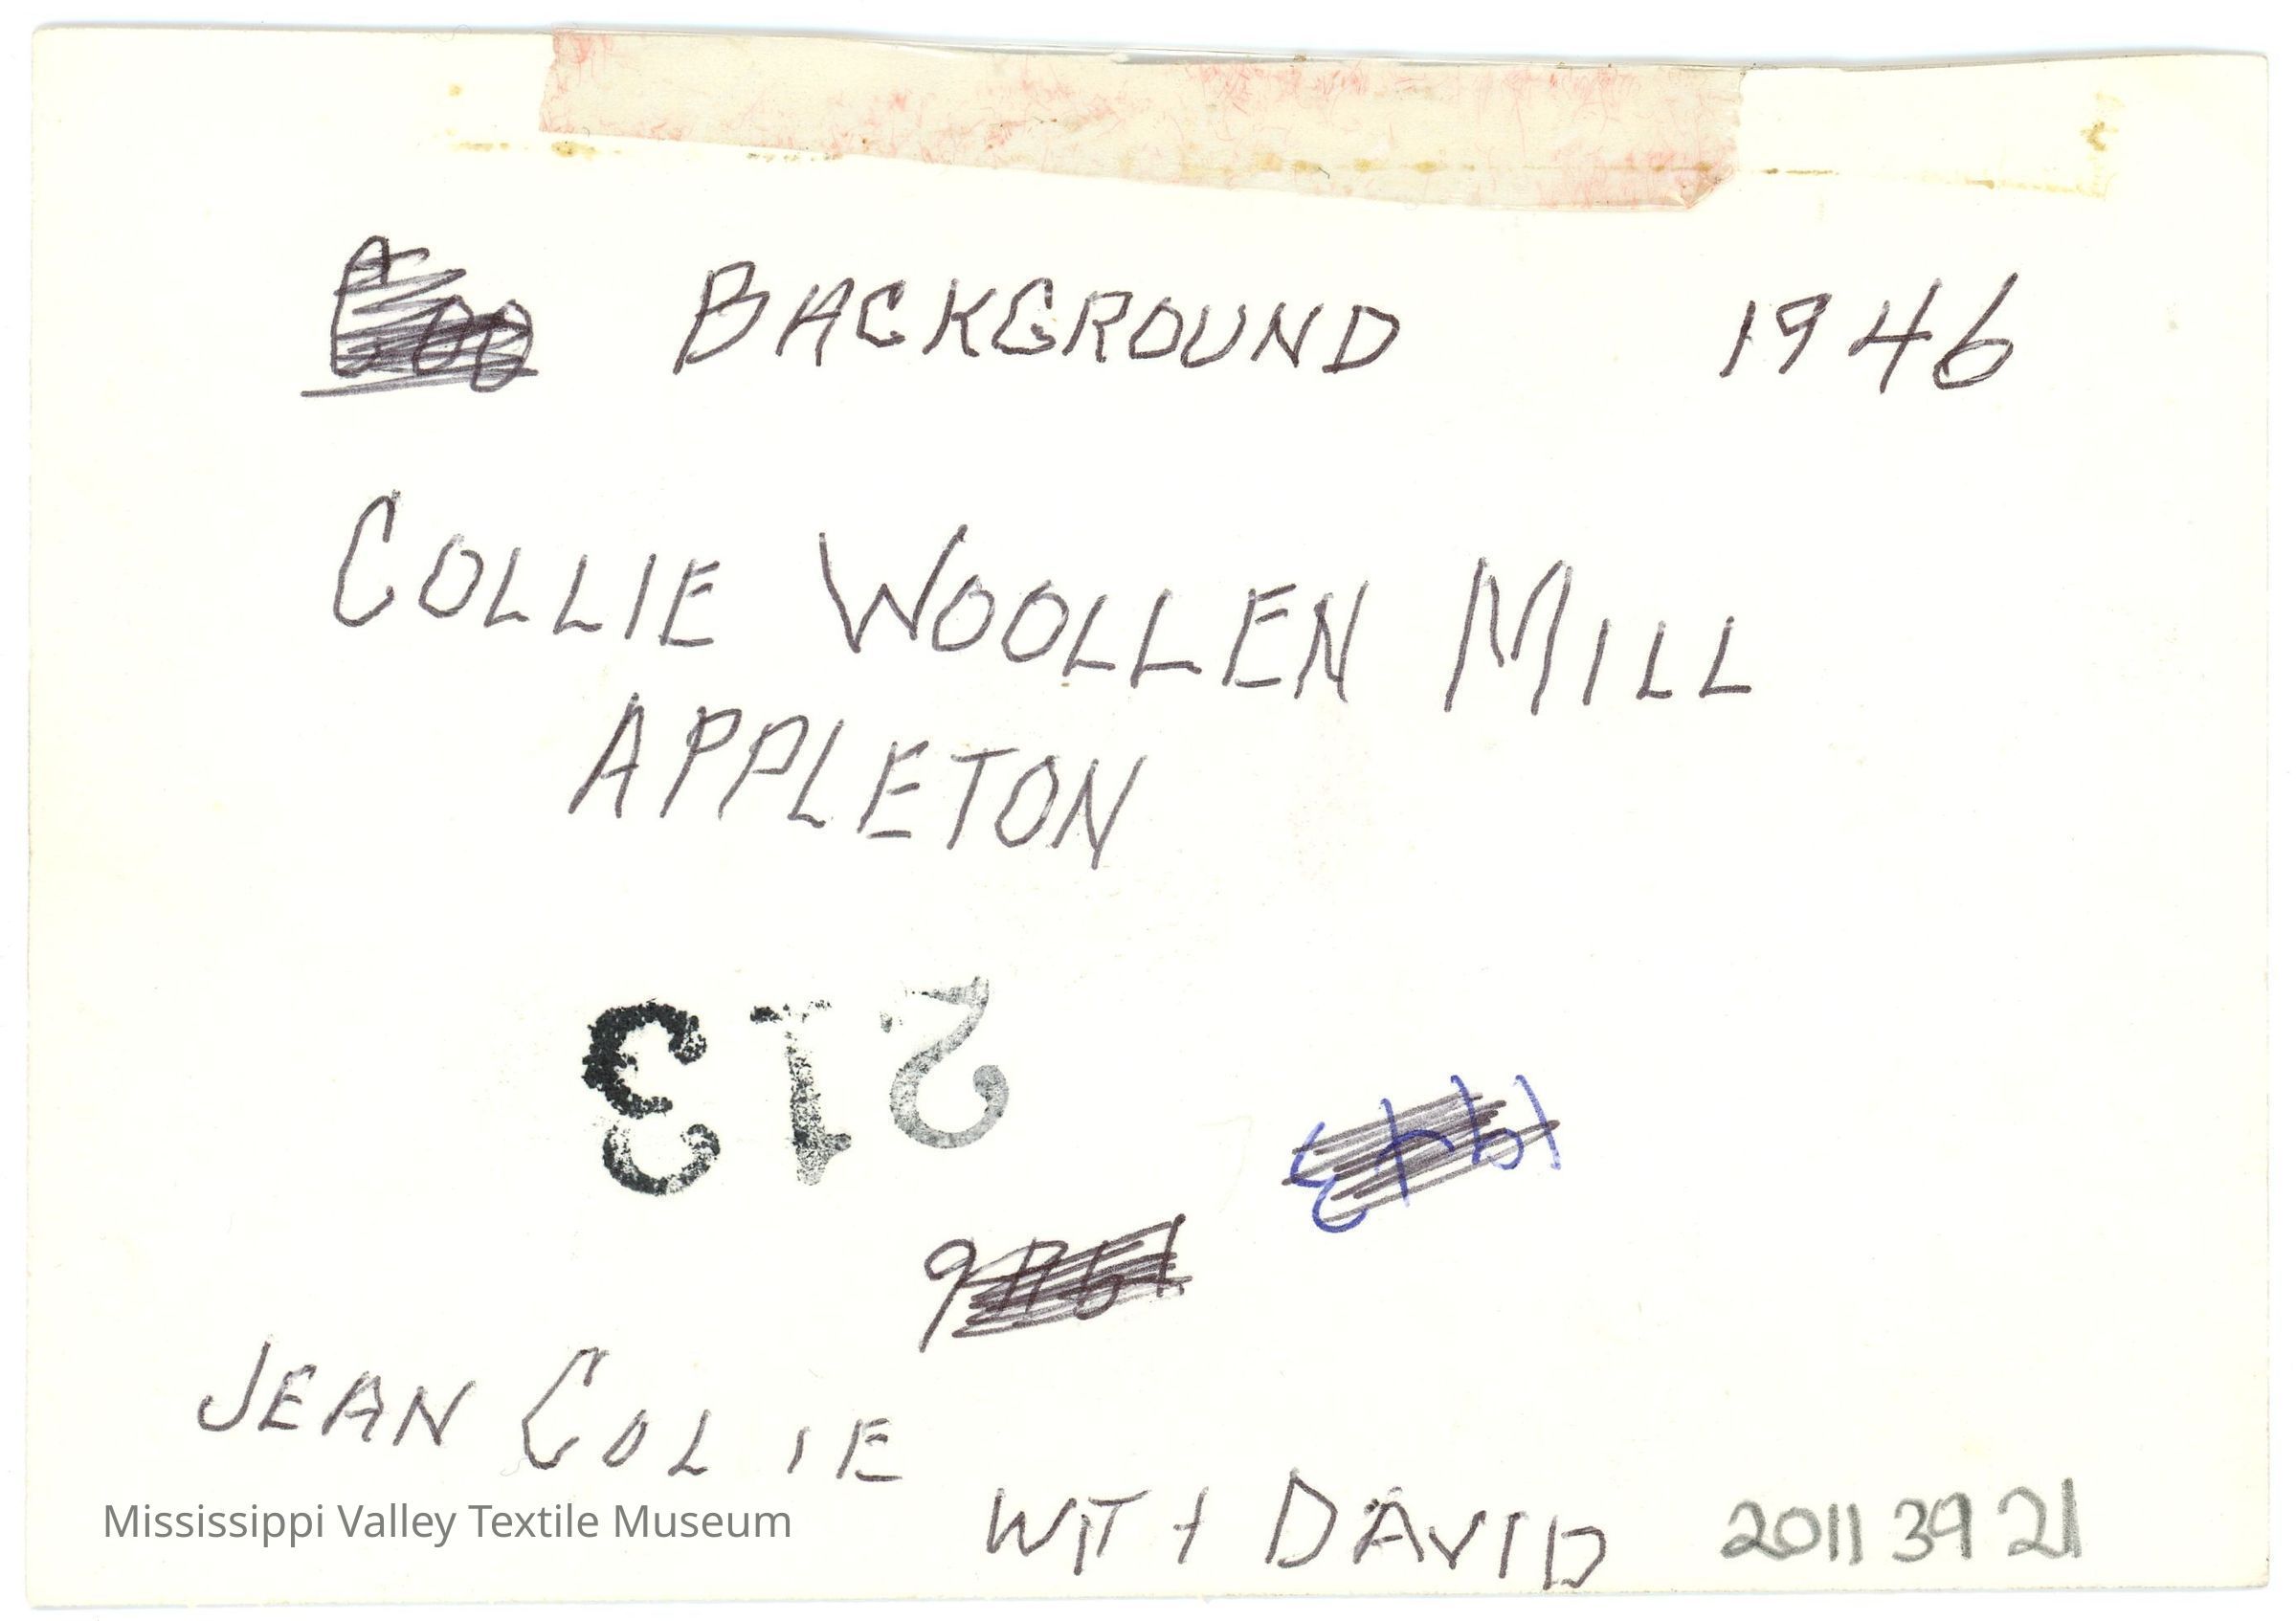 BACKGROUND 1946
COLLIE WOOLLEN MILL
APPLETON
213
JEAN COLIE
WITH DAVID
2011 39 21
Mississippi Valley Textile Museum